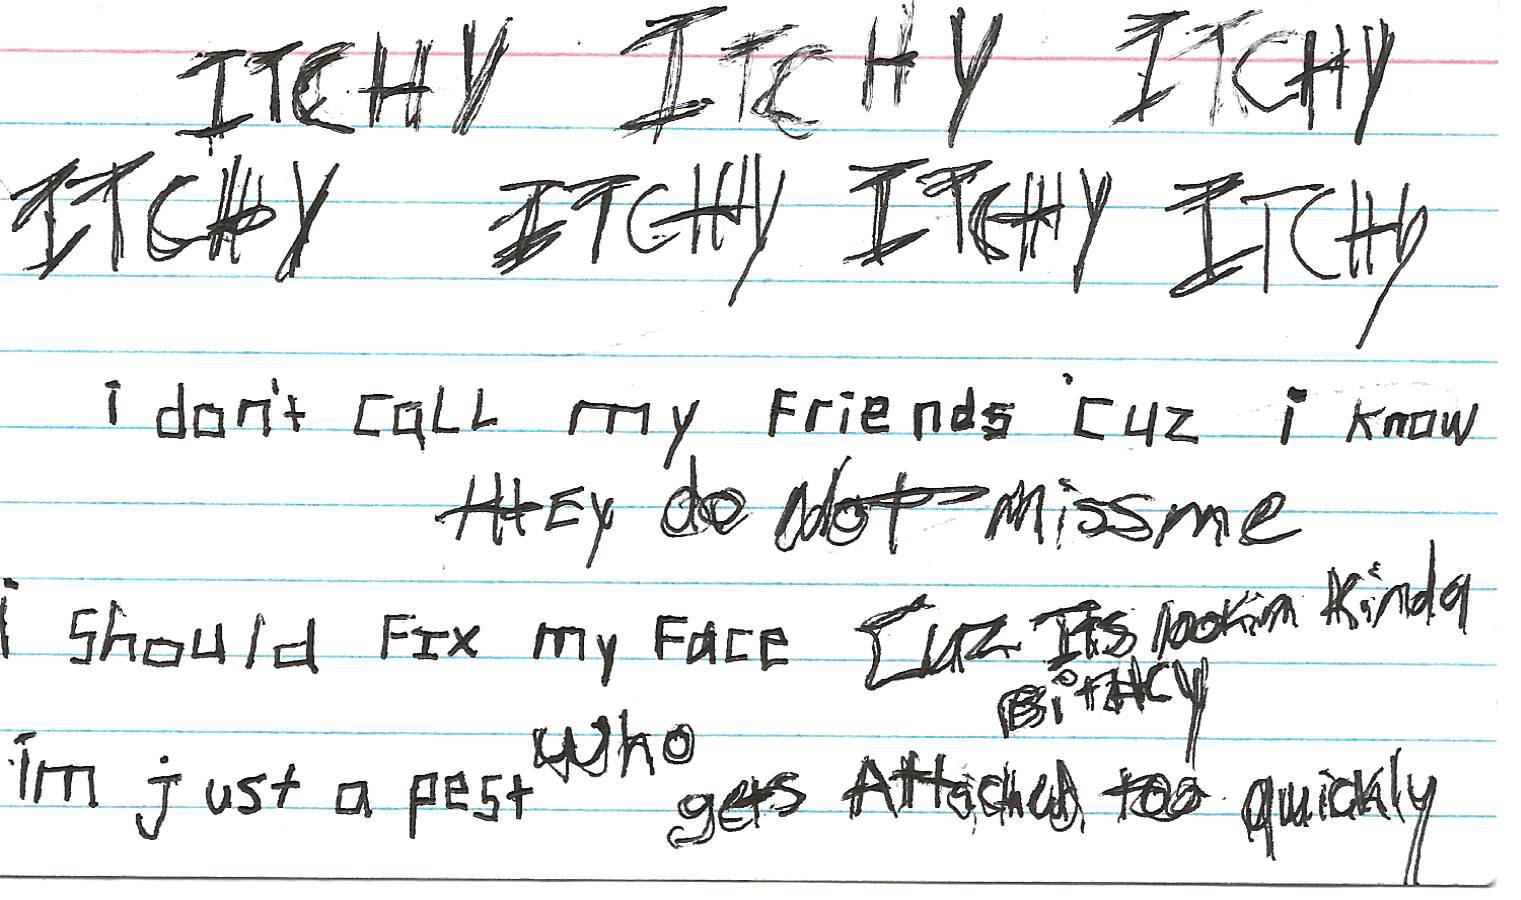 ITCHY ITCHY ITCHY
ITCHY ITCHY ITCHY ITCHY
i don't call my friends 'cuz i know
tHEy do Not miss me
i should Fix my Face Cuz Its lookin kinda
BitHcy
i'm just a pest who
gets Attached too quickly